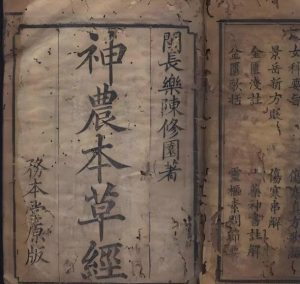 女科要旨
景岳新方砭
傷寒串解
金匱淺註
藥神書註解
金匱歌括
靈樞素問節
閩長樂陳修園著
神農本草經
務本堂原版